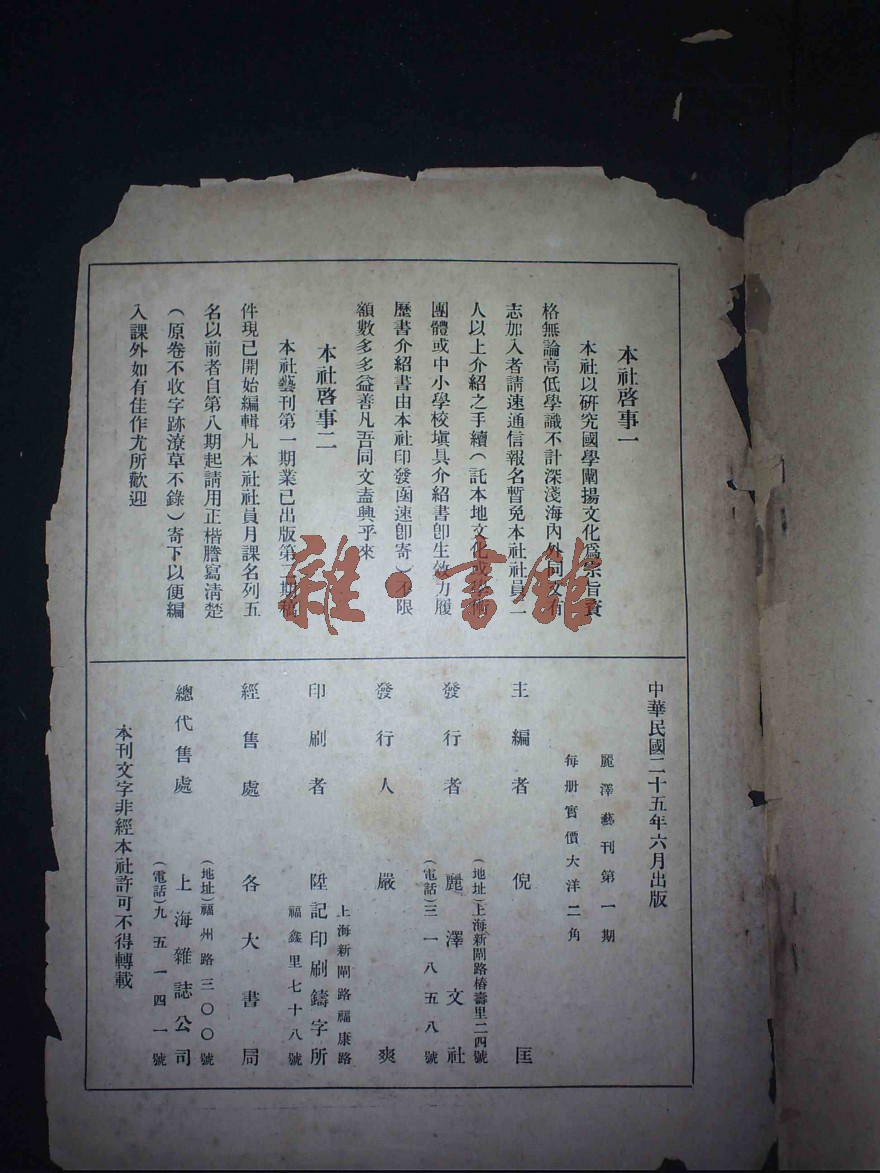 本社啓事一
本社以研究國學闡揚文化爲宗旨資
格無論高低學識不計深淺海內外同文有
志加入者請速通信報名暫免本社社員二
人以上介紹之手續（託本地文化或
團體或中小學校塡具介紹書卽生效力履
歷書介紹書由本社印發函速卽寄）不限
額數多多益善凡吾同文盍興乎來
本社啓事二
本社藝刊第一期業已出版第二期稿
件現已開始編輯凡本社社員月課名列五
名以前者自第八期起請用正楷謄寫淸楚
（原卷不收字跡潦草不錄）寄下以便編
入課外如有佳作尤所歡迎
中華民國二十五年六月出版
麗澤藝刊第一期
每册實價大洋二角
主編者 倪匡
發行者 麗澤文社
（地址）上海新閘路椿壽里二四號
（電話）三一八五八號
發行人 嚴爽
印刷者 陞記印刷鑄字所
上海新閘路福康路
福鑫里七十八號
經售處 各大書局
總代售處 上海雜誌公司
（地址）福州路三〇〇號
（電話）九五一四一號
本刊文字非經本社許可不得轉載
雜·書館